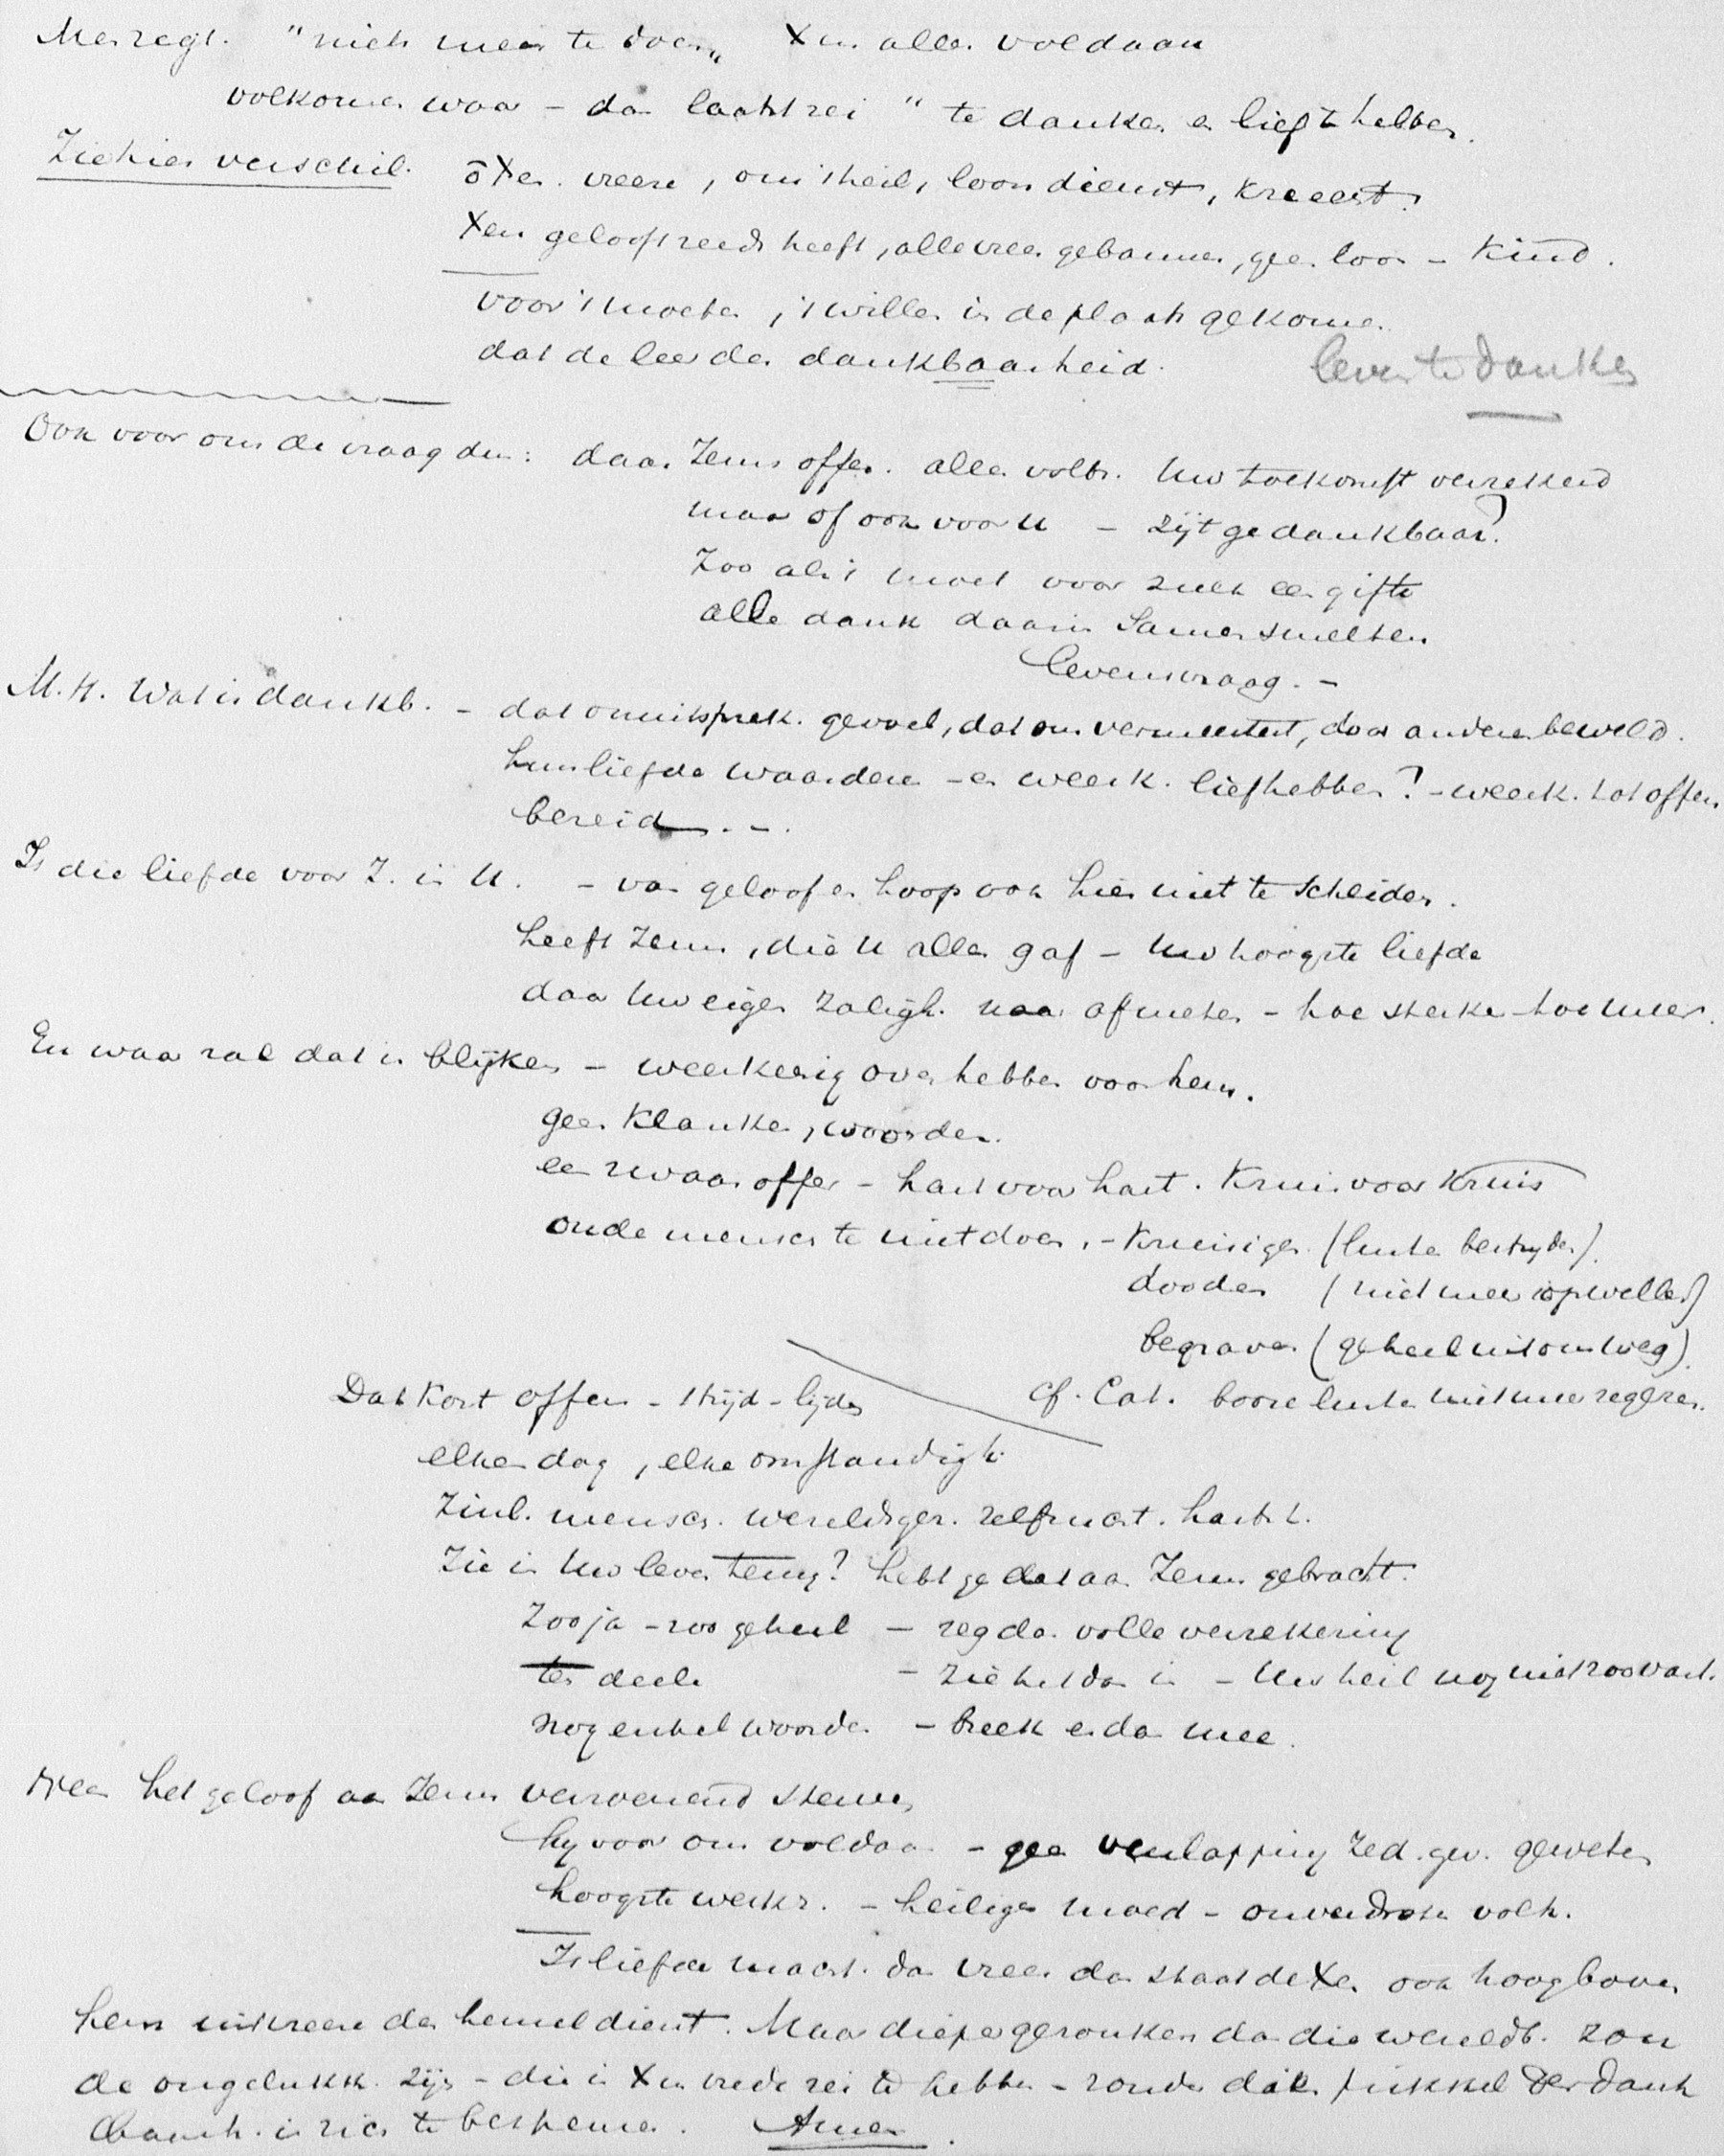 Men zegt. "niets meer te doen„ Xus alles voldaan
volkomen waar – dan laatst zei " te danken en lief te hebben.
Ziehier verschil. öXen. vreeze, om 't heil, loondienst, kneecht.
Xen geloof 't reeds heeft, alle vrees gebannen, geen loon – Kind.
voor 't moeten, 't willen in de plaats gekomen.
dat de leer der dankbaarheid. leven te danken
Ook voor ons de vraag dus: daar Jezus offer. alles volbr. Uw toekomst verzekerd
maar of ook voor U – zijt ge dankbaar?
Zoo als 't moet voor zulk een gifte
alle dank daarin Samensmelten.
levensvraag. –
M.H. Wat is dankb. – dat onuitsprek. gevoel, dat ons vermeestert, door anderen beweld.
hun liefde waardeere – en weerk. liefhebben? – weerk. tot offers
bereid. –.
Is die liefde voor J. in U. – van geloof en hoop ook hier niet te scheiden.
heeft Jezus, die U alles gaf – Uw hoogste liefde
daar Uw eigen zaligh. naar afmeten – hoe sterker hoe meer.
En waar zal dat in blijken – weerkeerig over hebben voor hem.
geen Klanken, woorden.
een zwaar offer – hart voor hart. Kruis voor Kruis
oude mensch te niet doen, – Kruisigen (lusten bestrijden).
dooden (niet meer opwellen)
begraven (geheel uit ons weg).
cf. Cat. booze lusten niet meer regeren.
Dat Kost offers – strijd – lijden
elken dag, elke omstandigh.
Zinl. mensch. wereldsgez. zelfzucht. hartst.
Zie in Uw leven terug? hebt ge dat aan Jezus gebracht.
Zoo ja – zoo geheel – zeg dan volle verzekering
ten deele – zie het dan in – Uw heil nog niet zoo vast.
nog enkel woorden – breek er dan mee.
Neen het geloof aan Jezus verzoenend sterven
hij voor ons voldaan – geen verslapping Zed. gev. geweten
hoogste werkz. – heilige moed – onverdroten volh.
Is liefde macht. dan vrees dan staat de Xen ook hoog boven
hem uit vreeze den hemel dient. Maar dieper gezonken dan die wereldl. zou
de ongelukk. zijn – die in Xus vrede zei te hebben – zonder dien prikkel der dank
baarh. in zich te bespeuren. Amen.